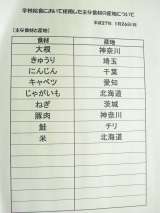 学校給食において使用した主な食材の産地について
平成27年 1月26日(月)
【主な食材と産地】
食材 産地
大根 神奈川
きゅうり 埼玉
にんじん 千葉
キャベツ 愛知
じゃがいも 北海道
ねぎ 茨城
豚肉 神奈川
鮭 チリ
米 北海道